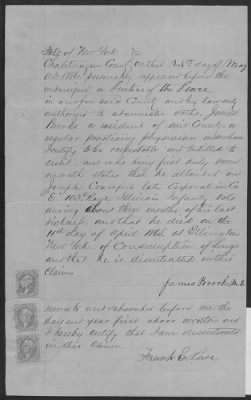 State of New York }ss
Chautauqua County On this 24th day of May
A.D. 1866 personally appeared before the
undersigned a Justice of the Peace
in and for said County and by law duly
authorized to administer oaths, James
Brooks a resident of said County a
regular practicing physician whom
I certify to be respectable and entitled to
credit and who being first duly sworn
states that he attended on
Joseph Crawford late Corporal in Co
"E" Regt Illinois Infantry Vols
during about three months of his last
sickness and that he died on the
11th day of April 1865 at Ellington
New York of Consumption of Lungs
and that he is disinterested in this
Claim.
James Brooks M.D.
Sworn to and subscribed before me the
day and year first above written and
I hereby certify that I am disinterested
in this Claim.
Frank E.